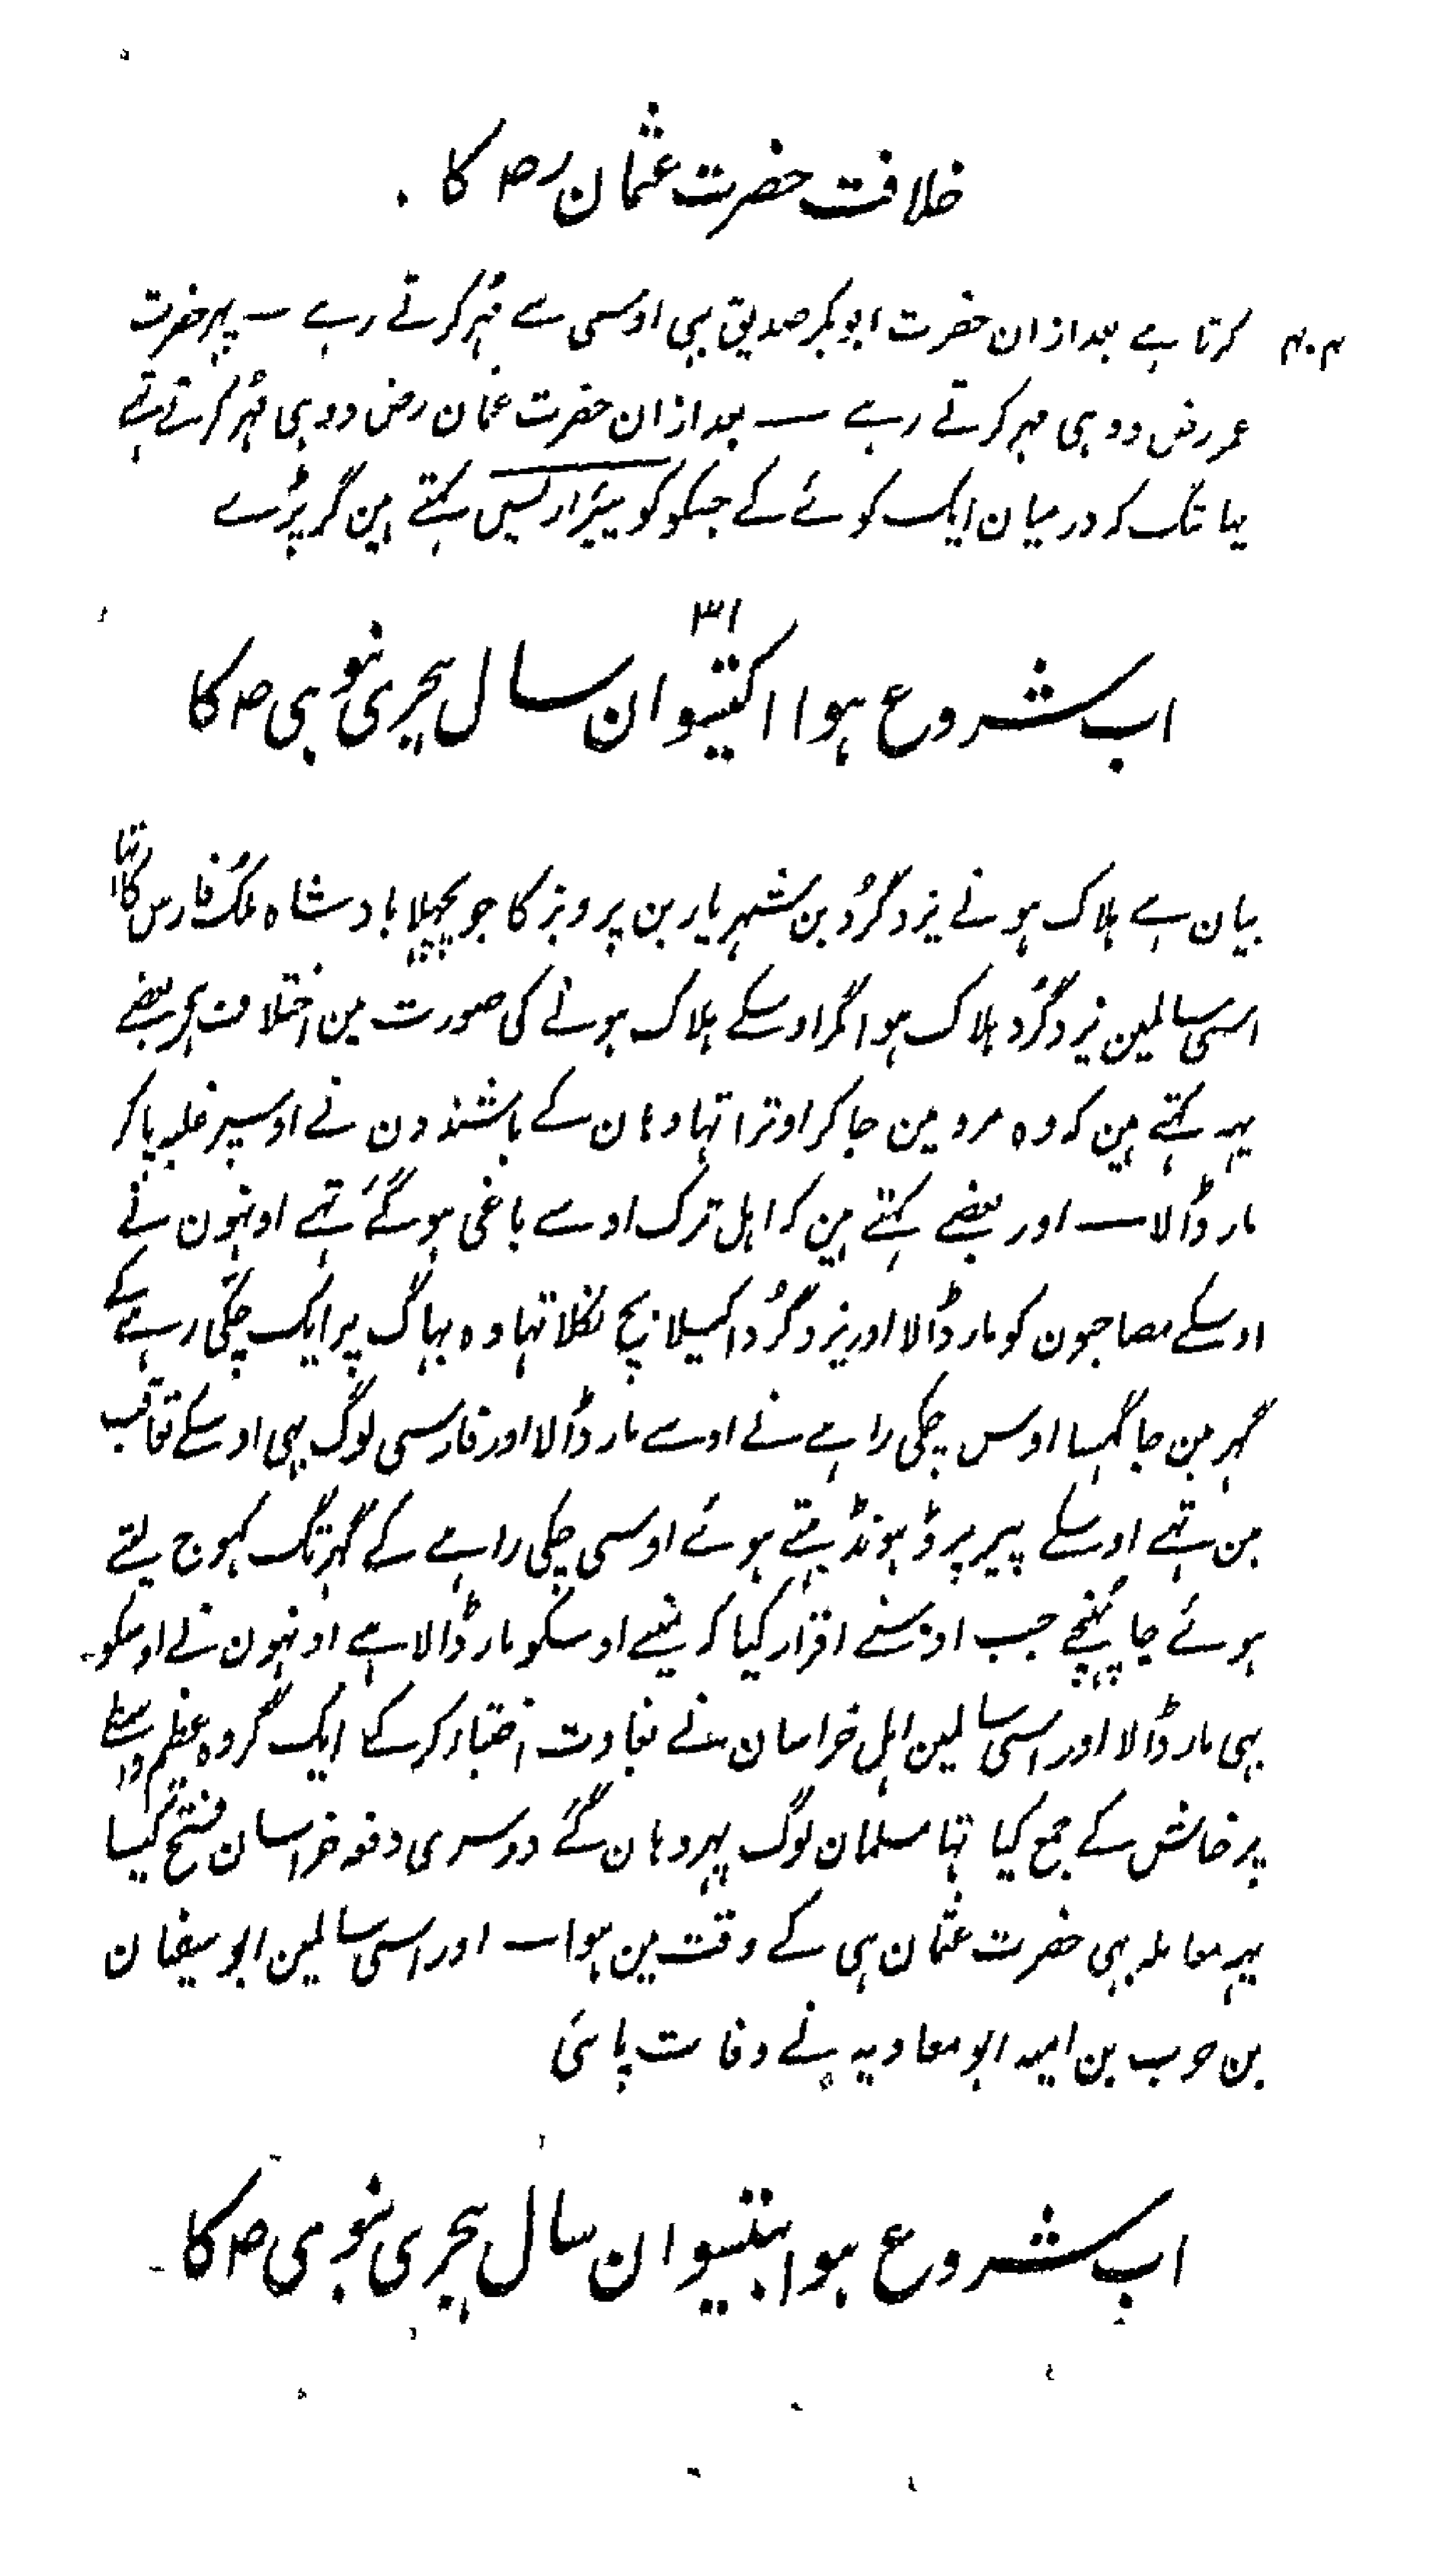 خلافت حضرت عثمان رض کا ۔
۴۰۴
کرتا ہے بعد ازان حضرت ابوبکر صدیق بہی اوسی سے مُہر کرتے رہے ــ پہر حضرت
عمر رض وو ہی مہر کرتے رہے ــ بعد ازان حضرت عثمان رض وو ہی مُہر کرتے تہے
یہانتک کہ درمیان ایک کوئے کے جسکو کو بیئرارسیں کہتے ہین گر پڑے
۳۱
اب شروع ہوا اکتیسوان سال ہجری نبوی ص کا
بیان ہے ہلاک ہونے یزدگرُد بن شہریار بن پرویز کا جو پچھلا بادشاہ ملک فارس کا تہا
اسی سالمین یزدگرُد ہلاک ہوا مگر اوسکے ہلاک ہونے کی صورت مین اختلاف ہی بعضے
یہہ کہتے ہین کہ وہ مرو مین جا کر اوترا تہا وہان کے باشندون نے اوسپر غلبہ پا کر
مار ڈالا ــ اور بعضے کہتے ہین کہ اہل ترک اوسے باغی ہو گئے تہے اونہون نے
اوسکے مصاحبون کو مار ڈالا اور یزدگرُد اکیلا بچ نکلا تہا وہ بہاگ پر ایک چکی رہے کے
گہر مین جا گہسا اوس چکی راہے نے اوسے مار ڈالا اور فارسی لوگ بہی اوسکے تعاقب
مین تہے اوسکے پیر پر ڈہونڈہتے ہوئے اوسی چکی راہے کے گہر تک کہوج لیتے
ہوئے جا پہنچے جب اوسنے اقرار کیا کہ مینے اوسکو مار ڈالا ہے اونہون نے اوسکو
بہی مار ڈالا اور اسی سالمین اہل خراسان نے بغاوت اختیار کر کے ایک گروہ عظیم واسطے
پرخاش کے جمع کیا تہا مسلمان لوگ پہر وہان گئے دوسری دفعہ خراسان فتح کیا
یہہ معاملہ بہی حضرت عثمان ہی کے وقت مین ہوا ــ اور اسی سالمین ابو سیفان
بن حرب بن امیہ ابو معاویہ نے وفات پائی
اب شروع ہوا بتیسوان سال ہجری نبوی ص کا ۔